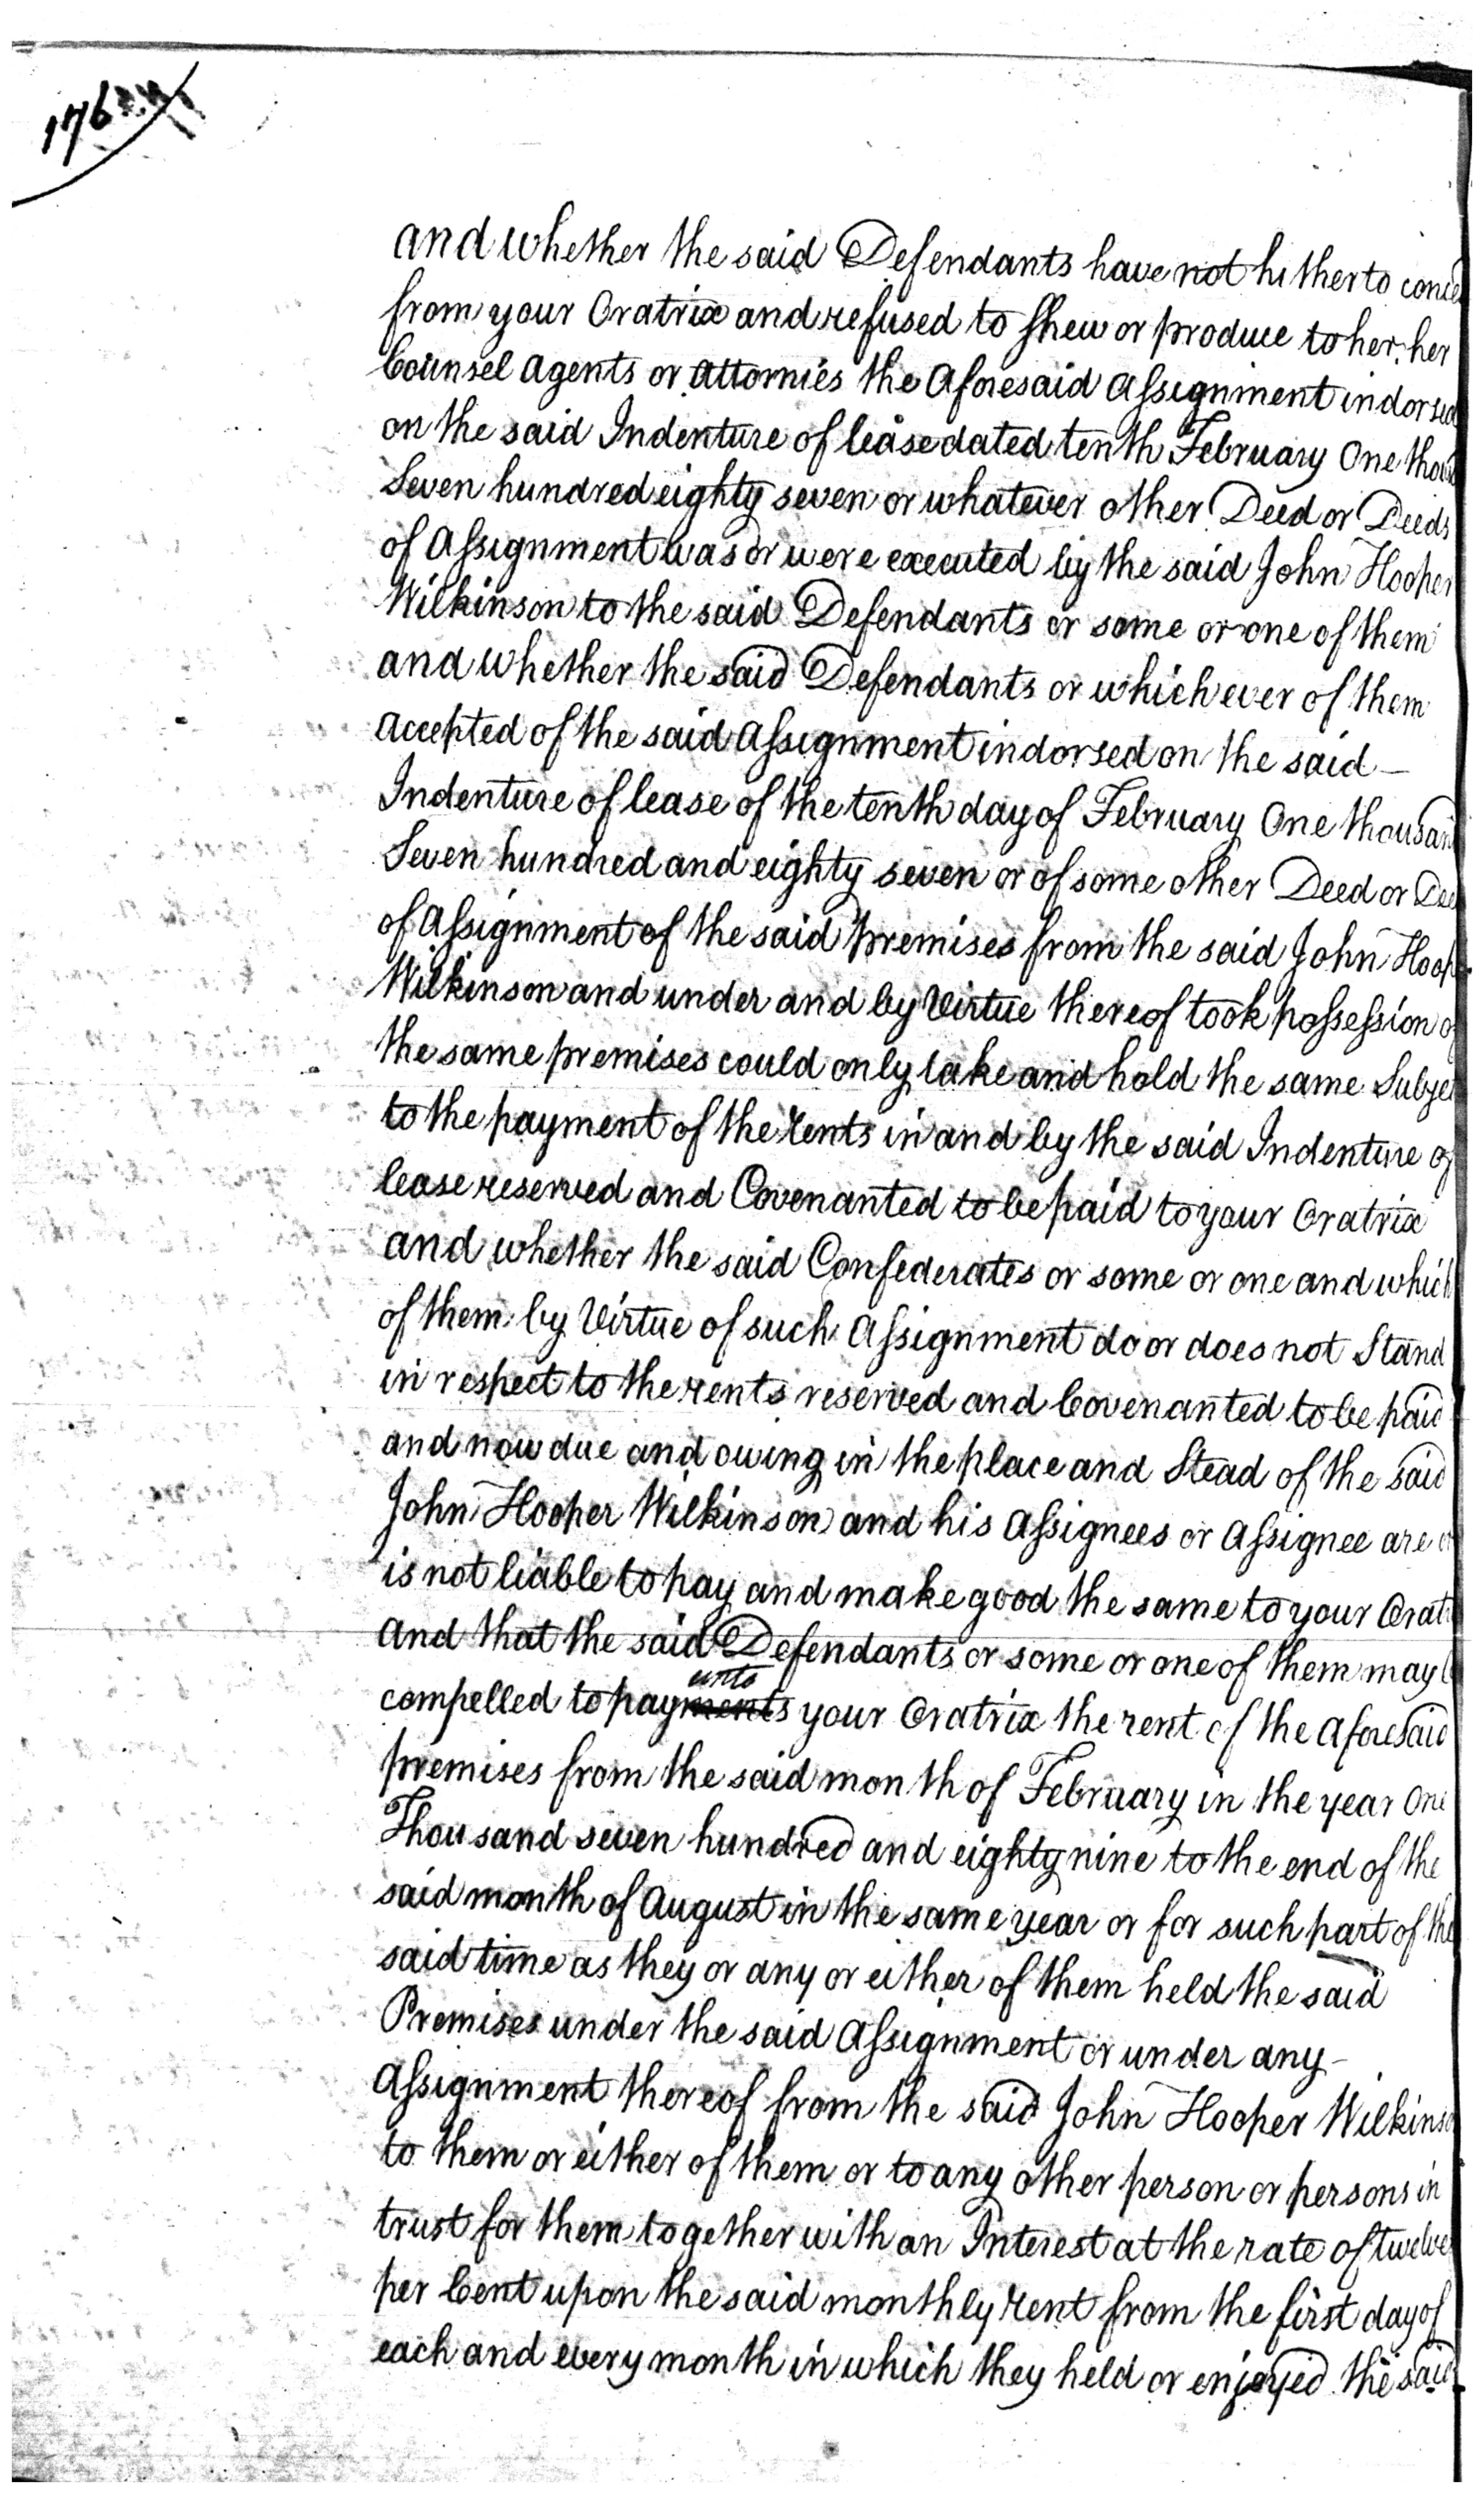 176
and whether the said Defendants have not hitherto conce
from your Oratrix and refused to shew or produce to her, her
Counsel Agents or Attornies the Aforesaid Assignment indorsed
on the said Indenture of lease dated tenth February One thous
Seven hundred eighty seven or whatever other Deed or Deeds
of Assignment was or were executed by the said John Hooper
Wilkinson to the said Defendants or some or one of them
and whether the said Defendants or which ever of them
accepted of the said Assignment indorsed on the said –
Indenture of lease of the tenth day of February One thousan
Seven hundred and eighty seven or of some other Deed or Dee
of Assignment of the said premises from the said John Hoop
Wilkinson and under and by Virtue thereof took possession of
the same premises could only take and hold the same Subje
to the payment of the rents in and by the said Indenture of
lease reserved and Covenanted to be paid to your Oratrix
and whether the said Confederates or some or one and which
of them by Virtue of such Assignment do or does not Stand
in respect to the rents reserved and Covenanted to be paid
and now due and owing in the place and Stead of the said
John Hooper Wilkinson and his Assignees or Assignee are or
is not liable to pay and make good the same to your Orat
And that the said Defendants or some or one of them may b
unto
compelled to payments your Oratrix the rent of the aforesaid
premises from the said month of February in the year One
Thousand seven hundred and eighty nine to the end of the
said month of August in the same year or for such part of the
said time as they or any or either of them held the said
Premises under the said Assignment or under any –
Assignment thereof from the said John Hooper Wilkinso
to them or either of them or to any other person or persons in
trust for them together with an Interest at the rate of twelve
per Cent upon the said monthly rent from the first day of
each and every month in which they held or enjoyed the said